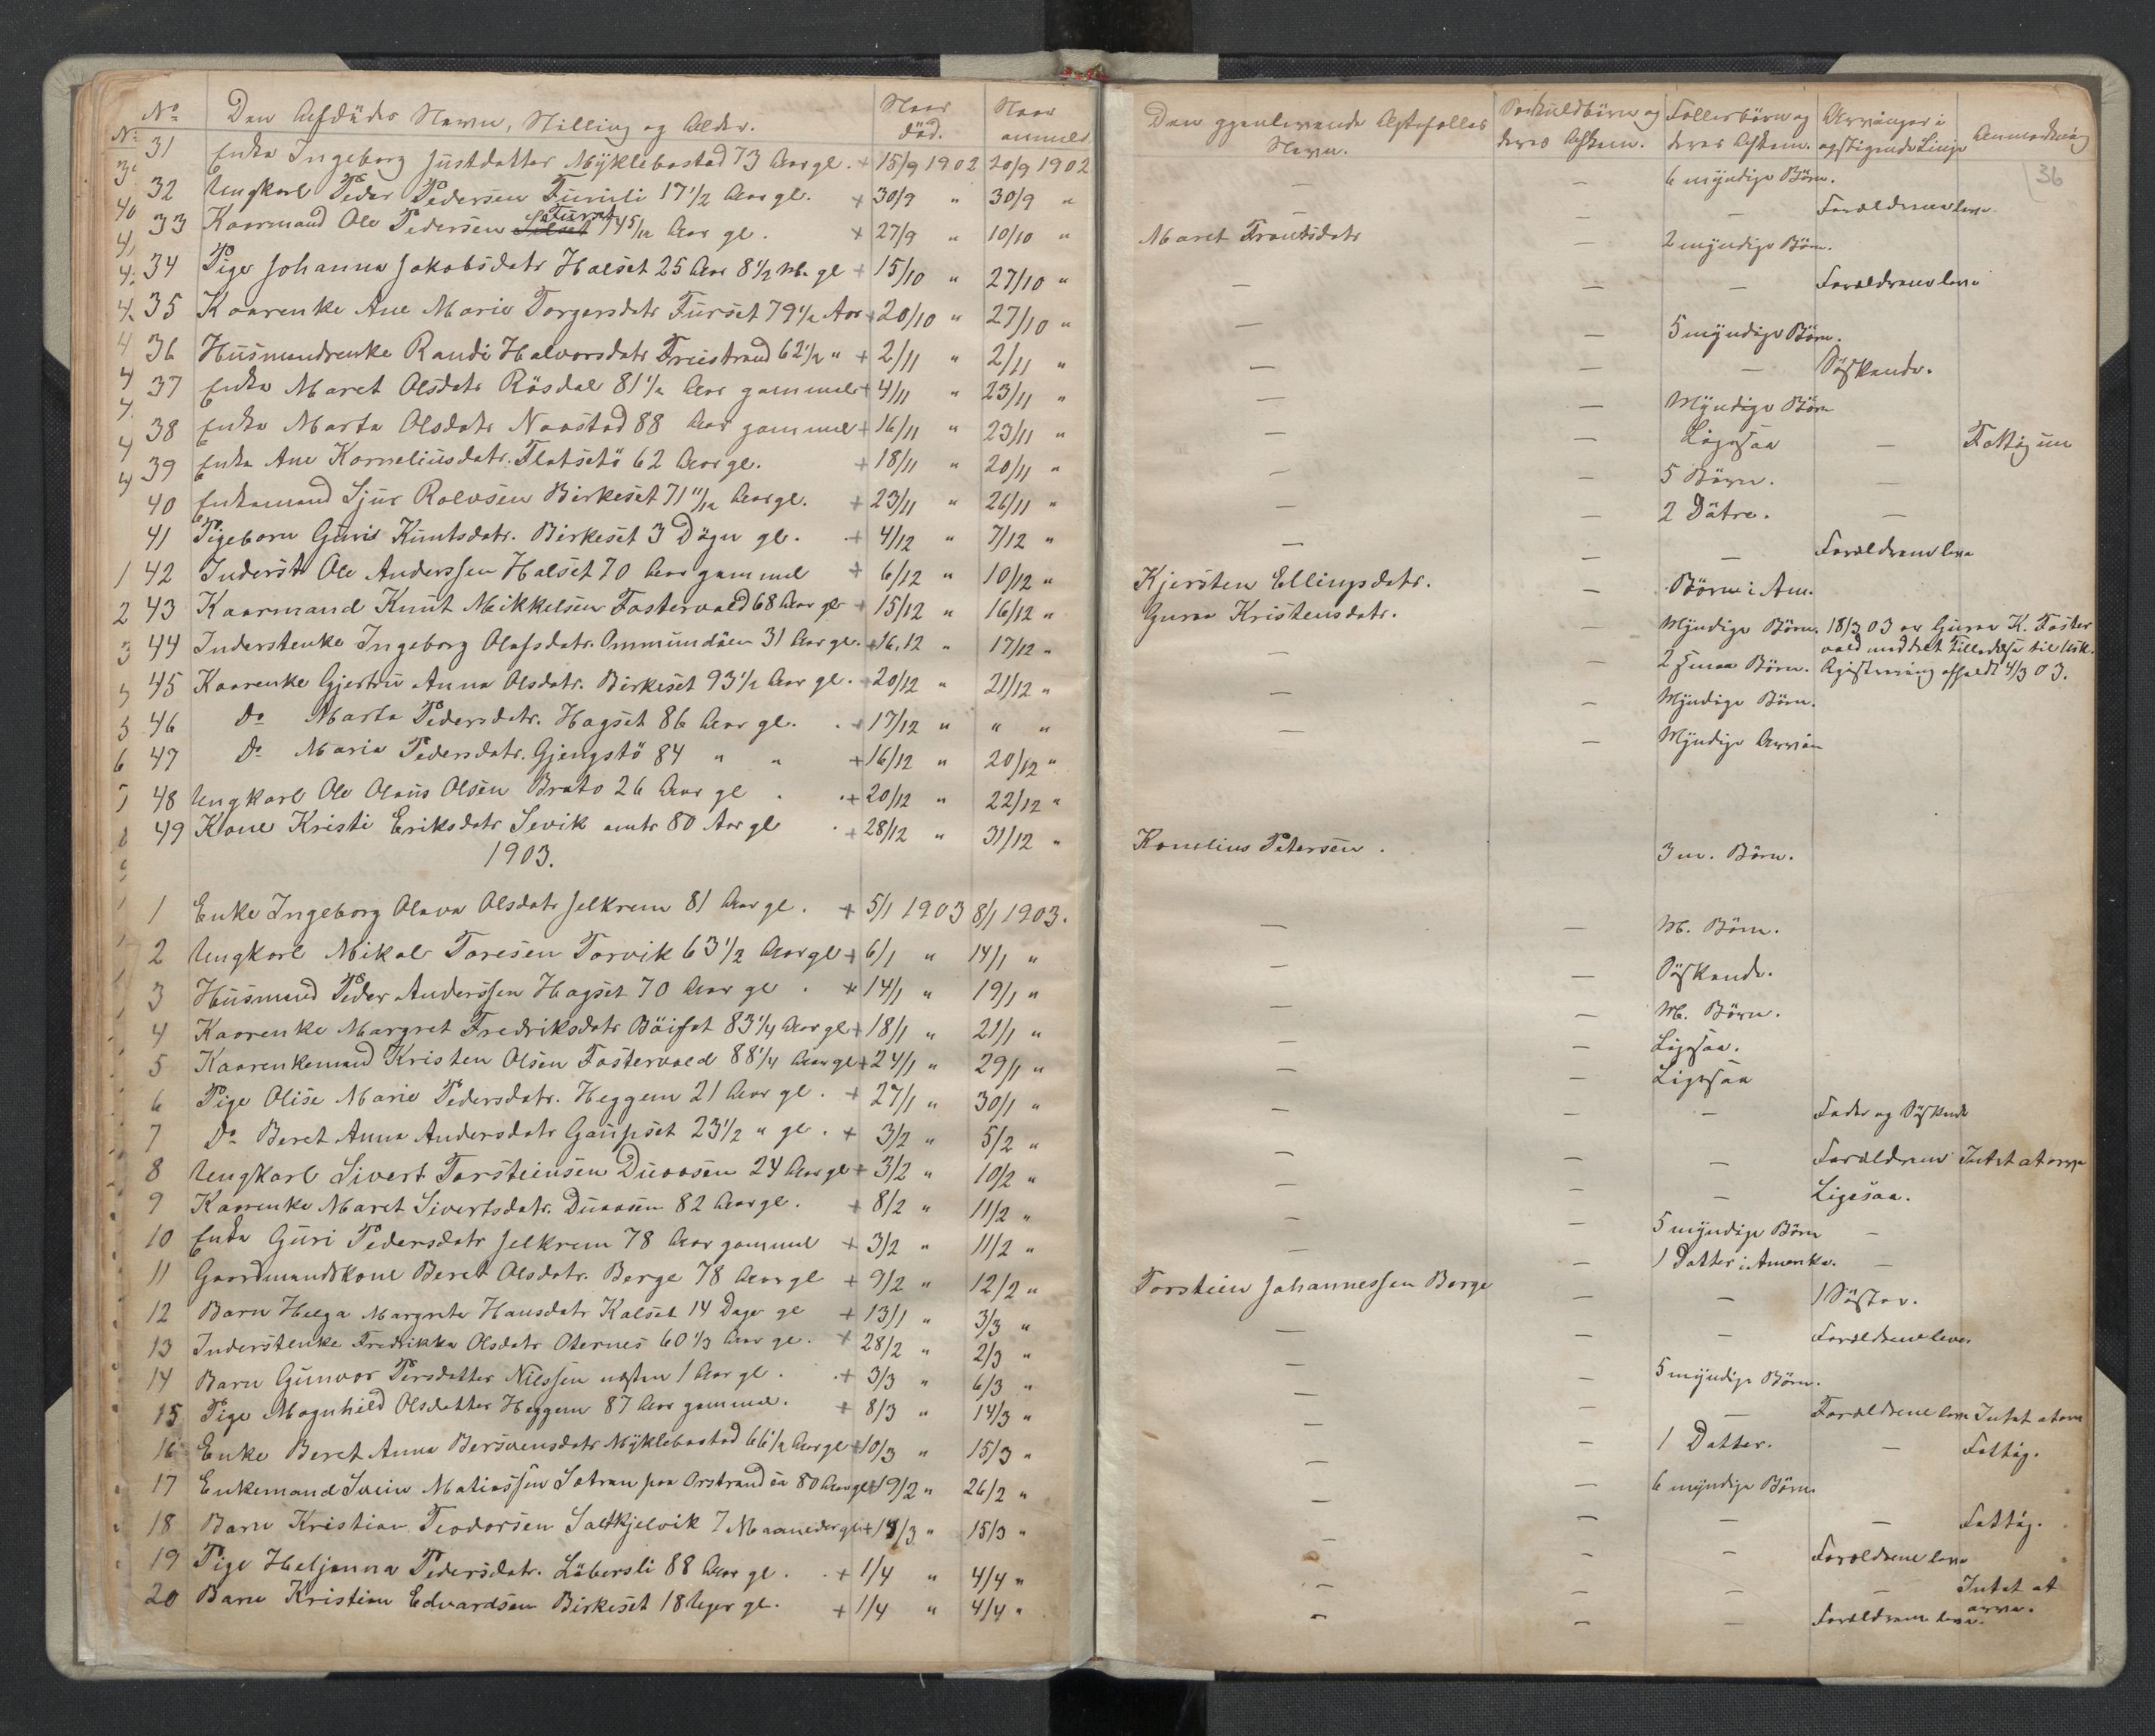 No Den Afdødes Navn, Stilling og Alder. Naar død. Naar anmeldt
31 Enka Ingeborg Justdatter Myklebostad 73 Aar gl. + 15/9 1902 20/9 1902
32 Ungkarl Peder Pedersen Furuli 17 1/2 Aar gl. + 30/9 " 30/9 "
33 Kaarmand Ole Pedersen Furset 74 5/12 Aar gl. + 27/9 " 10/10 "
34 Pige Johanna Jakobsdatr Halset 25 Aar 8 1/2 M. gl + 15/10 " 27/10 "
35 Kaarenke Ane Marie Torgersdatr Furset 79 1/2 Aar + 20/10 " 27/10 "
36 Husmandsenke Randi Halvorsdatr Truestrand 62 1/2 " + 2/11 " 2/11 "
37 Enka Maret Olsdatr Rösdal 81 1/2 Aar gammel + 4/11 " 23/11 "
38 Enka Marta Olsdatr Naastad 88 Aar gammel + 16/11 " 23/11 "
39 Enka Ane Korneliusdatr. Flatsetö 62 Aar gl. + 18/11 " 20/11 "
40 Enkemand Sjur Rolvsen Birkeset 71 11/12 Aar gl. + 23/11 " 26/11 "
41 Pigebarn Guri Knutsdatr. Birkeset 3 Dögn gl. + 4/12 " 7/12 "
42 Inderst Ole Anderssen Halset 70 Aar gammel + 6/12 " 10/12 "
43 Kaarmand Knut Mikkelsen Fostervold 68 Aar gl + 15/12 " 16/12 "
44 Inderstenke Ingeborg Olafsdatr. Ommundöen 31 Aar gl. + 16.12 " 17/12 "
45 Kaarenke Gjertru Anna Olsdatr. Birkeset 93 1/2 Aar gl. + 20/12 " 21/12 "
46 Do Marta Pedersdatr. Hagset 86 Aar gl. + 17/12 " " "
47 Do Maria Pedersdatr. Gjengstö 84 " " + 16/12 " 20/12 "
48 Ungkarl Ole Olaus Olsen Brato 26 Aar gl . + 20/12 " 22/12 "
49 Kone Kristi Eriksdatr Sevik omtr 80 Aar gl . + 28/12 " 31/12 "
1903.
1 Enke Ingeborg Olava Olsdatr Jelkrem 81 Aar gl. + 5/1 1903 8/1 1903.
2 Ungkarl Nikol Toresen Torvik 63 1/2 Aar gl + 6/1 " 14/1 "
3 Husmand Peder Anderssen Hagset 70 Aar gl . + 14/1 " 19/1 "
4 Kaarenke Margret Fredriksdatr Böifot 83 1/4 Aar gl + 18/1 " 21/1 "
5 Kaarenkemand Kristen Olsen Fostervold 88 1/4 Aar gl + 24/1 " 29/1 "
6 Pige Olise Marie Pedersdatr. Heggem 21 Aar gl. + 27/1 " 30/1 "
7 Do Beret Anna Andersdatr Gaupset 23 1/2 " gl. + 3/2 " 5/2 "
8 Ungkarl Sivert Torsteinsen Duaasen 24 Aar gl + 3/2 " 10/2 "
9 Kaarenke Maret Sivertsdatr. Duaasen 82 Aar gl. + 8/2 " 11/2 "
10 Enka Guri Pedersdatr Jelkrem 78 Aar gammel + 3/2 " 11/2 "
11 Gaardmandskone Beret Olsdatr. Berge 78 Aar gl + 9/2 " 12/2 "
12 Barn Helga Margrete Hansdatr Kalset 14 Dage gl + 13/1 " 3/3 "
13 Inderstenke Fredrikka Olsdatr Oternes 60 1/3 Aar gl. + 28/2 " 2/3 "
14 Barn Gunvor Persdatter Nilssen næsten 1 Aar gl. + 3/3 " 6/3 "
15 Pige Magnhild Olsdatter Heggem 87 Aar gammel. + 8/3 " 14/3 "
16 Enke Beret Anna Bersvensdatr Myklebostad 66 1/2 Aar gl + 10/3 " 15/3 "
17 Enkemand Svein Matiassen Sotran paa Orstranden 80 Aar gl + 19/2 " 26/2 "
18 Barn Kristian Teodorsen Saltkjelvik 7 Maaneder gl + 13/3 " 15/3 "
19 Pige Heljanna Pedersdatr. Löbersli 88 Aar gl. + 1/4 " 4/4 "
20 Barn Kristian Edvardsen Birkeset 18 Uger gl. + 1/4 " 4/4 "
Den gjenlevende Ægtefælles Navn. Særkuldbörn og deres Afkom. Fællesbörn og deres Afkom. Arvinger i opstigende Linje Anmærkning
36
— — 6 myndige Börn.
— — Forældrene leve
Maret Trondsdatr — 2 myndige Börn.
— — — Forældrene leve
— — 5 myndige Börn.
— — — Söskende.
— — Myndige Börn
— — Ligesaa — Fattig
— — 5 Börn. —
— — 2 Dötre. —
— — — Forældrene leve
Kjersten Ellingsdatr. — Börn i Am.
Guraa Kristensdatr. — Myndige Börn. 18/3 03 er Guraa K. Foster
vold meddelt Tilladelse til Usk.
— — 2 smaa Börn. Registrering afholdt 4/3 03.
— — Myndige Börn.
— — Myndige Arvin
Kornelius Petersen. 3 m. Börn.
— — M. Börn.
— — Söskende.
— — M. Börn.
— — Ligesaa.
— — Ligesaa
— — — Fader og Söskende
— — — Forældrene Intet at arve
— — — Ligesaa.
— — 5 myndige Börn —
— — 1 Datter i Amerika. —
Torstein Johannessen Berge — — 1 Söster.
— — — Forældrene lever
— — 5 myndige Börn.
— — — Forældrene leve Intet at arve
— — 1 Datter. — Fattig.
— — 6 myndige Börn.
— — — — Fattig.
— — — Forældrene leve
— — — — Intet at arve.
— — — Forældrene leve.